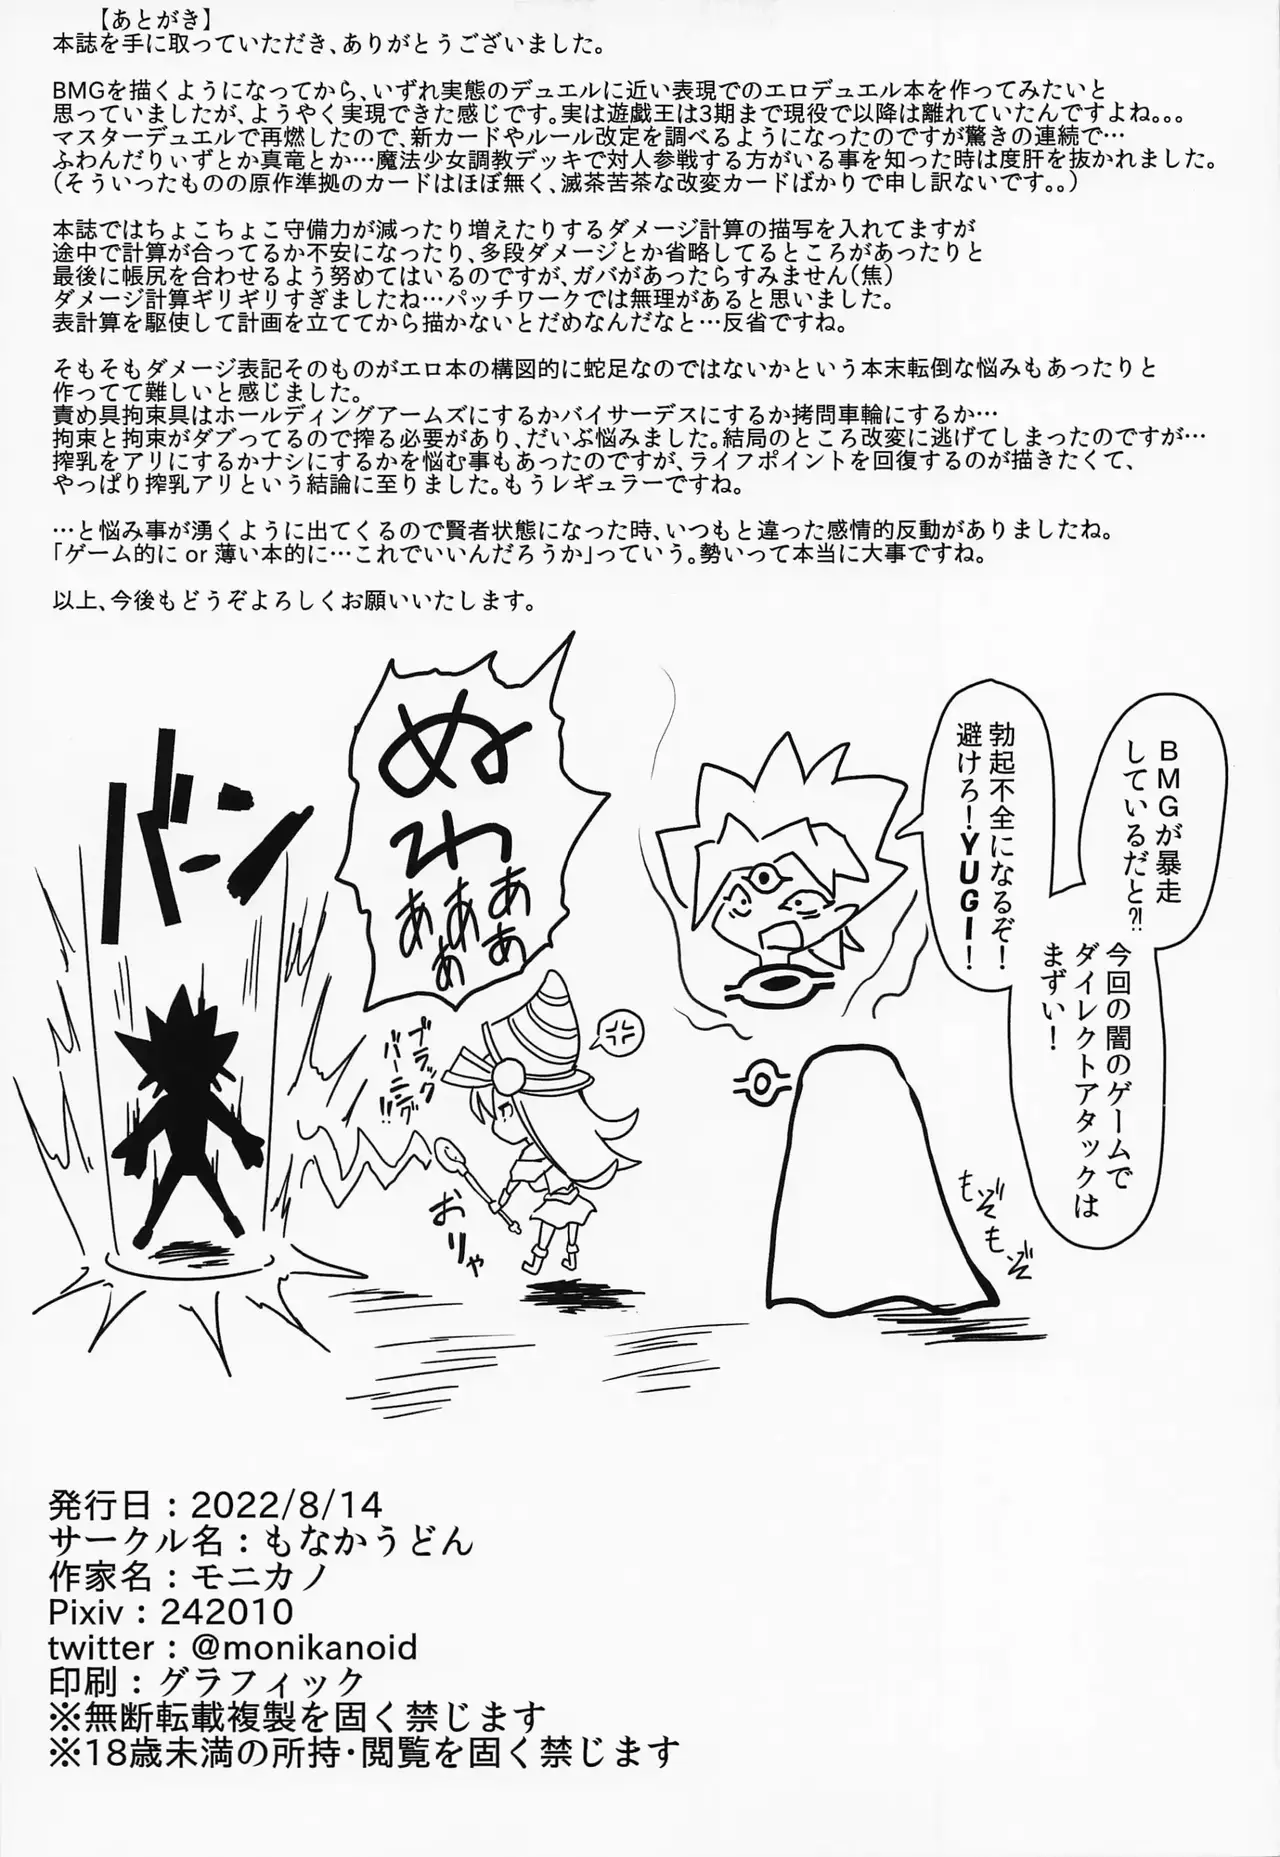 【あとがき】
本誌を手に取っていただき、ありがとうございました。
BMGを描くようになってから、いずれ実態のデュエルに近い表現でのエロデュエル本を作ってみたいと
思っていましたが、ようやく実現できた感じです。実は遊戯王は3期まで現役で以降は離れていたんですよね。。。
マスターデュエルで再燃したので、新カードやルール改定を調べるようになったのですが驚きの連続で…
ふわんだりぃずとか真竜とか…魔法少女調教デッキで対人参戦する方がいる事を知った時は度肝を抜かれました。
（そういったものの原作準拠のカードはほぼ無く、滅茶苦茶な改変カードばかりで申し訳ないです。。）
本誌ではちょこちょこ守備力が減ったり増えたりするダメージ計算の描写を入れてますが
途中で計算が合ってるか不安になったり、多段ダメージとか省略してるところがあったりと
最後に帳尻を合わせるよう努めてはいるのですが、ガバがあったらすみません（焦）
ダメージ計算ギリギリすぎましたね…パッチワークでは無理があると思いました。
表計算を駆使して計画を立ててから描かないとだめなんだなと…反省ですね。
そもそもダメージ表記そのものがエロ本の構図的に蛇足なのではないかという本末転倒な悩みもあったりと
作ってて難しいと感じました。
責め具拘束具はホールディングアームズにするかバイサーデスにするか拷問車輪にするか…
拘束と拘束がダブってるので搾る必要があり、だいぶ悩みました。結局のところ改変に逃げてしまったのですが…
搾乳をアリにするかナシにするかを悩む事もあったのですが、ライフポイントを回復するのが描きたくて、
やっぱり搾乳アリという結論に至りました。もうレギュラーですね。
…と悩み事が湧くように出てくるので賢者状態になった時、いつもと違った感情的反動がありましたね。
「ゲーム的に or 薄い本的に…これでいいんだろうか」っていう。勢いって本当に大事ですね。
以上、今後もどうぞよろしくお願いいたします。
BMGが暴走
しているだと⁈
今回の闇のゲームで
ダイレクトアタックは
まずい！
勃起不全になるぞ！
避けろ！YUGI！
ぬ
わ
ああ
ああ
ああ
バーン
ブラック
バーニング!!
おりゃ
もぞ
もぞ
発行日：2022/8/14
サークル名：もなかうどん
作家名：モニカノ
Pixiv：242010
twitter：@monikanoid
印刷：グラフィック
※無断転載複製を固く禁じます
※18歳未満の所持・閲覧を固く禁じます